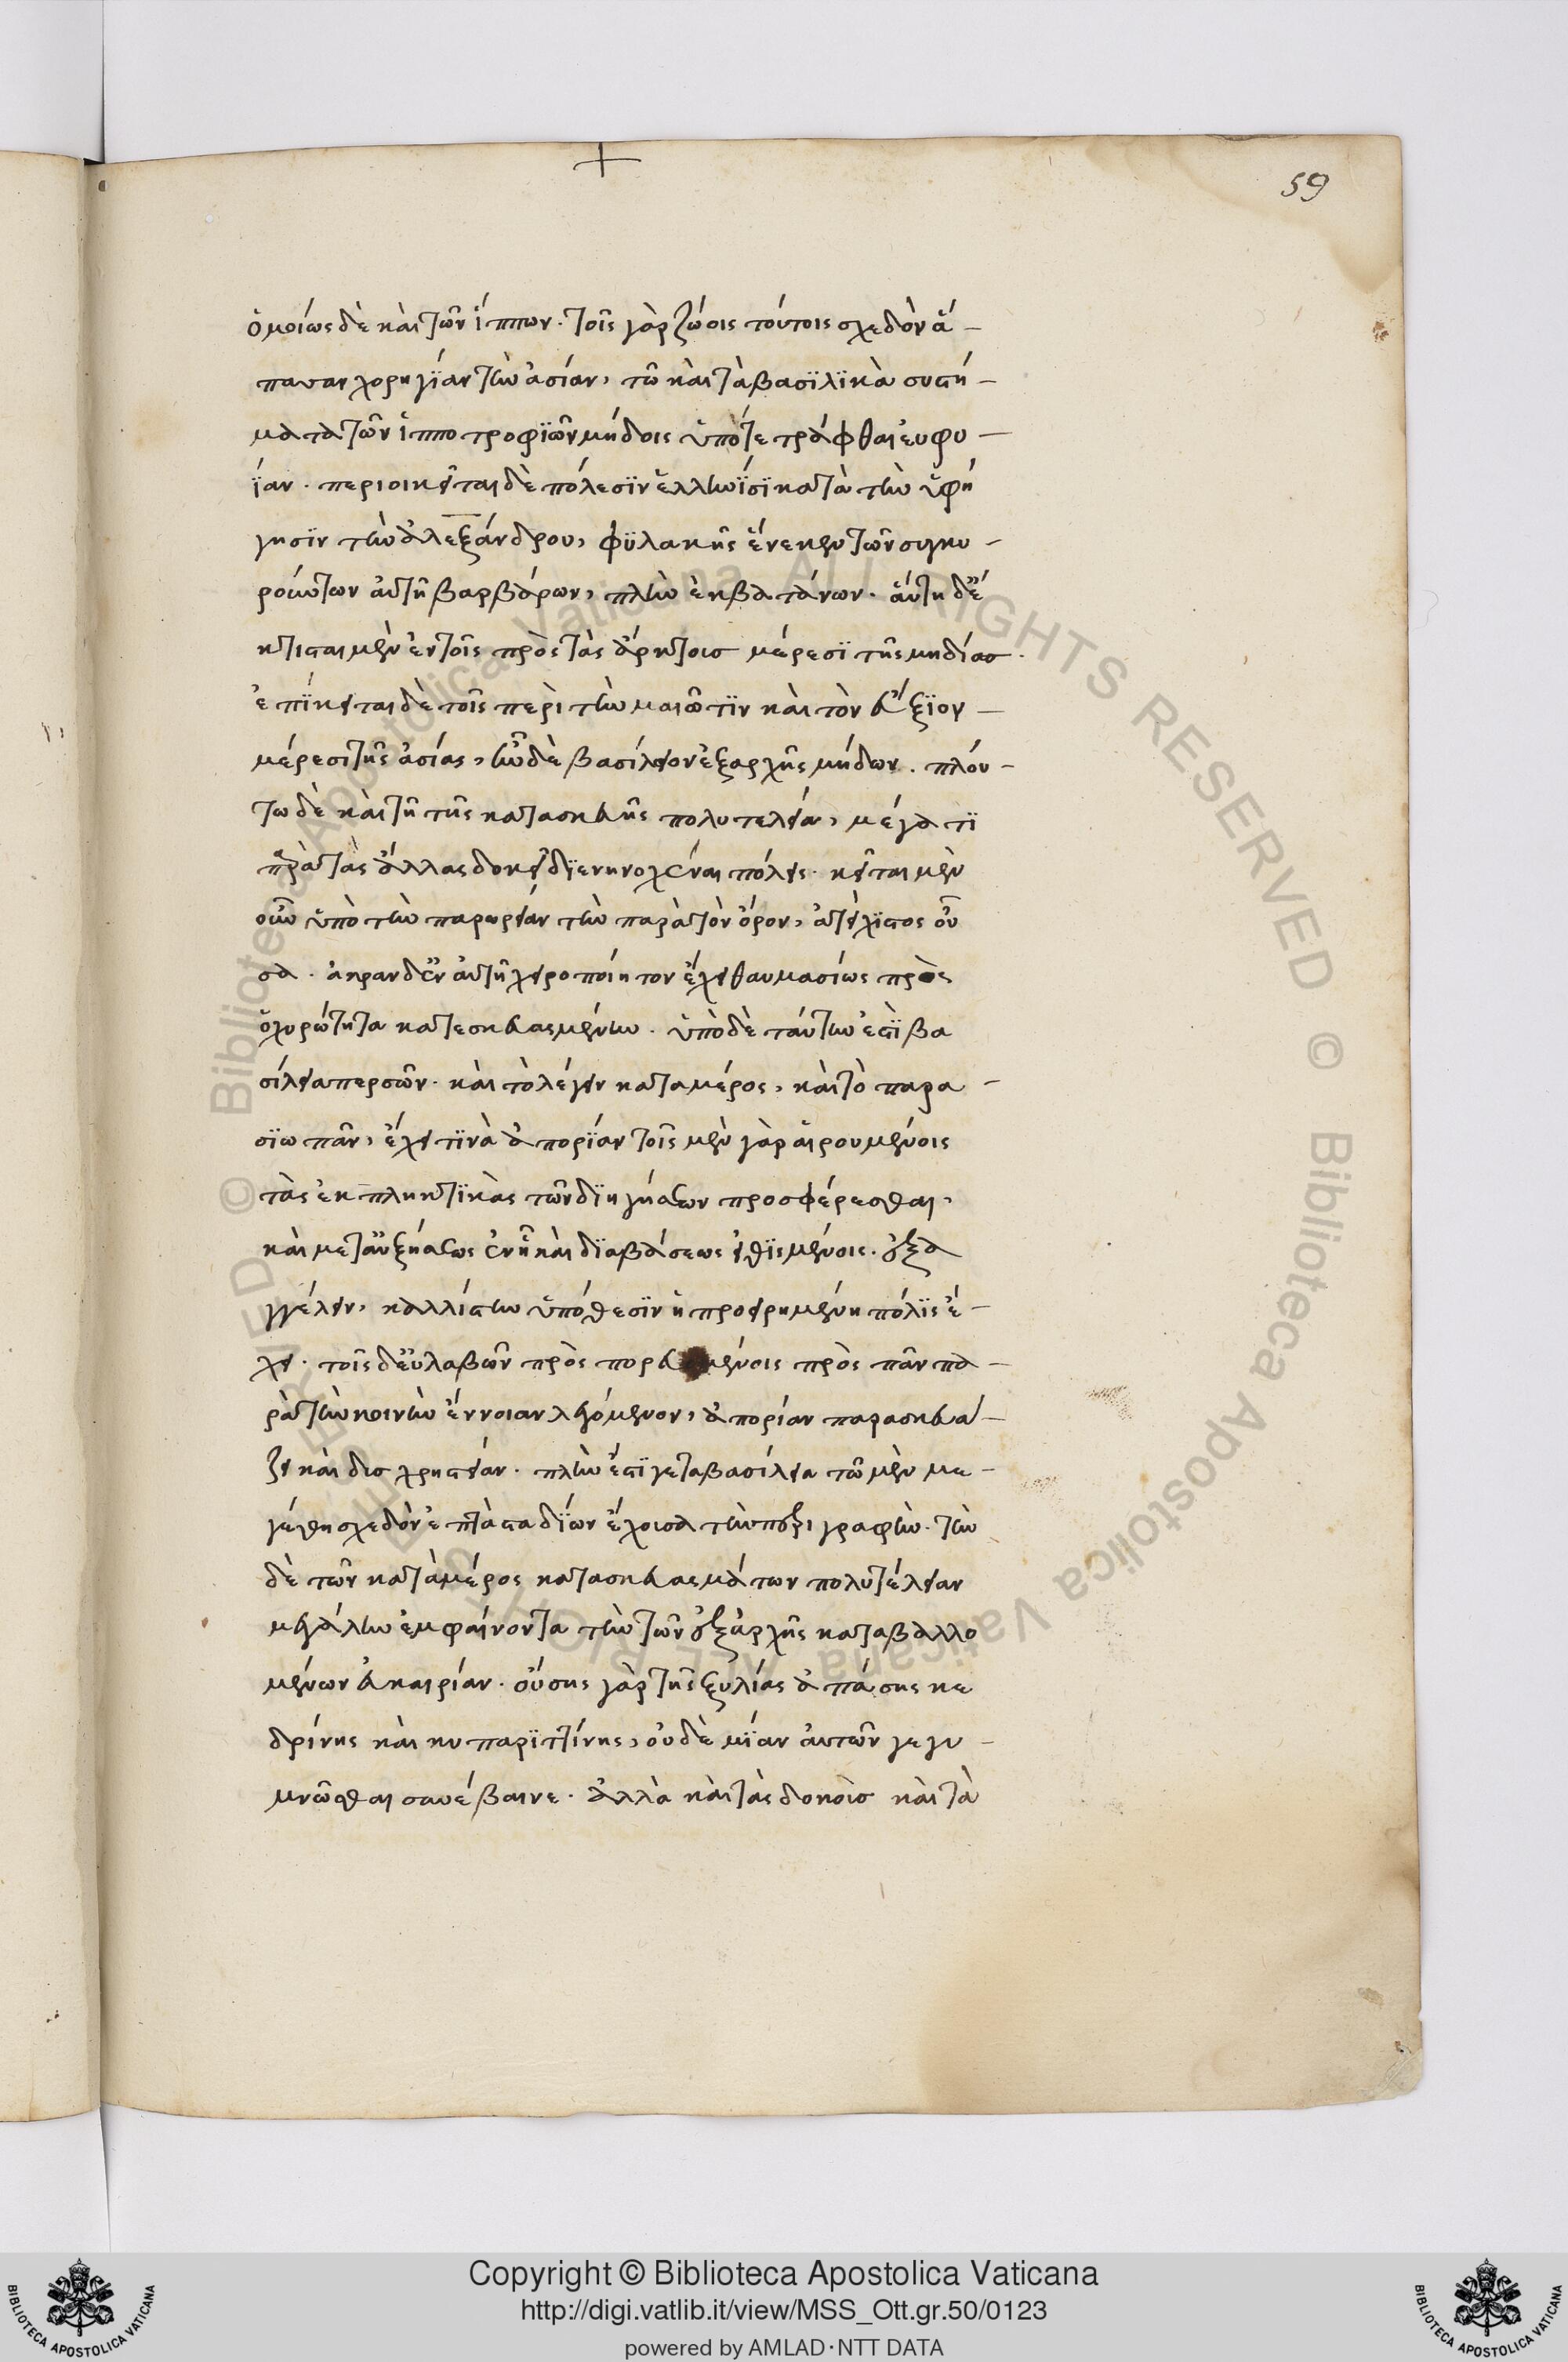 +
59
ὁμοίως δὲ καὶ τῶν ἵππων. τοῖς γὰρ ζώοις τούτοις σχεδὸν ἅ-
πασαν χορηγΐαν τὴν ἀσίαν, τῶ καὶ τὰ βασϊλϊκὰ συστή-
ματα τῶν ἱπποτροφϊῶν μήδοις ὑπότετράφθαι εὐφυ-
ΐαν. περιοικεῖται δὲ πόλεσϊν ἑλληνΐσϊ κατὰ τὴν ὑφή
γησϊν τὴν ἀλεξάνδρου, φϋλακῆς ἕνεκεν τῶν συγκυ-
ρούντων αὐτῆ βαρβάρων, πλὴν ἐκβατάνων. αὕτη δἔ
κτισται μὲν ἐν τοῖς πρὸς τὰς ἄρκτοισ μέρεσϊ τῆς μηδίασ.
ἐπΐκειται δὲ τοῖς περὶ τὴν μαιῶτϊν καὶ τὸν εὔξϊον-
μέρεσι τῆς ἀσίας, ἦν δὲ βασίλειον ἐξαρχῆς μήδων. πλού-
τω δὲ καὶ τῆ τῆς κατασκευῆς πολυτελεία, μέγα τϊ
παρὰ τὰς ἄλλας δοκεῖ δϊενηνοχέναι πόλεις. κεῖται μὲν
οὖν ὑπὸ τὴν παρωρείαν τὴν παρὰ τὸν ὄρον, ἀτείχϊστος οὖ
σα. ἄκραν δ̓ ἐν αὐτῆ χειροποίητον ἔχει θαυμασίως πρὸς
ὀχυρώτητα κατεσκευασμένην. ὑπὸ δὲ ταύτην ἐστϊ βα
σίλεια περσῶν. καὶ τὸ λέγειν καταμέρος, καὶ τὸ παρα-
σϊωπᾶν, ἔχει τϊνὰ ἀπορϊαν τοῖς μὲν γὰρ αἱρουμένοις
τὰς ἐκπληκτϊκὰς τῶν δϊηγήσεων προσφέρεσθαι,
καὶ μετ' αὐξήσεως ἐνῆ καὶ δϊαβάσεως εἰθϊσμένοις. ἐξα
γγέλειν, καλλίστην ὑπόθεσϊν ἡ προειρημένη πόλϊς ἔ-
χει. τοῖς δ' εὐλαβῶν πρὸς πορευομένοις πρὸς πᾶν πα-
ρὰ τὴν κοινὴν ἔννοιαν λεγόμενον, ἀπορίαν παρασκευά-
ζει καὶ δισχρηστείαν. πλὴν ἔστϊ γε τα βασίλεια τῶ μὲν με-
γέθη σχεδὸν ἑπτὰ σταδΐων ἔχουσα τὴν περιγραφὴν. τὴν
δὲ τῶν κατὰ μέρος κατασκευασμάτων πολυτέλειαν
μεγάλην ἐμφαίνοντα τὴν τῶν ἐξ ἀρχῆς καταβαλλο
μένων εὐκαιρίαν. οὔσης γὰρ τῆς ξυλίας ἁπάσης κε
δρίνης καὶ κυπαρϊττίνης, οὐδὲ μϊαν αὐτῶν γεγυ-
μνῶσθαι συνέβαινε. ἀλλὰ καὶ τὰς δοκοὶσ καὶ τὰ
Copyright © Biblioteca Apostolica Vaticana
http://digi.vatlib.it/view/MSS_Ott.gr.50/0123
powered by AMLAD·NTT DATA